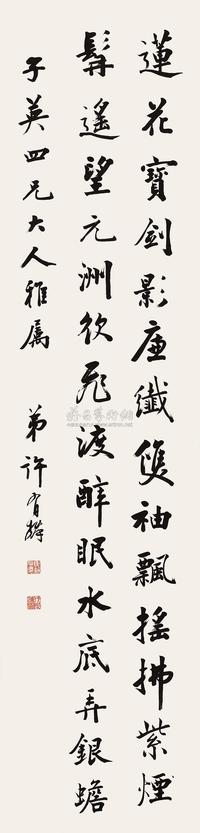 蓮花寶劍影廉纖雙袖飄搖拂紫煙
髯遙望元洲欲飛渡醉眠水底弄銀蟾
子英四兄大人雅属 弟許育璠